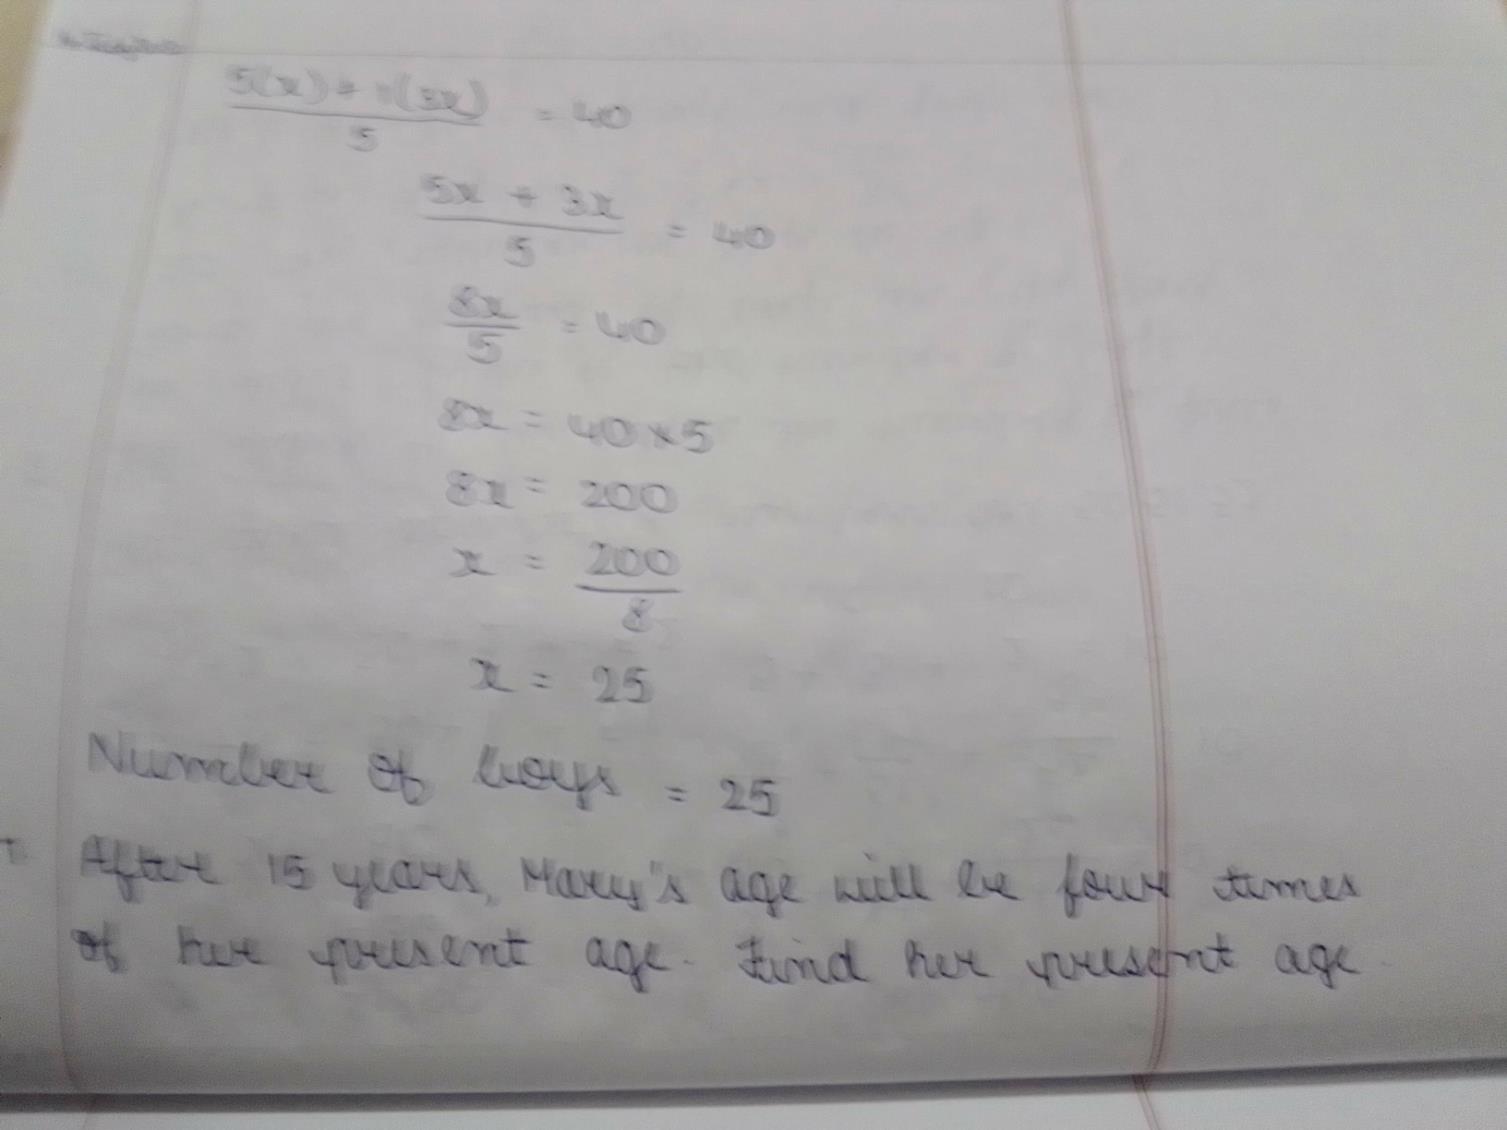 5(x) + 1(3x) / 5 = 40
5x + 3x / 5 = 40
8x / 5 = 40
8x = 40 × 5
8x = 200
x = 200 / 8
x = 25
Number of boys = 25
After 15 years, Mary's age will be four times
of her present age. Find her present age.